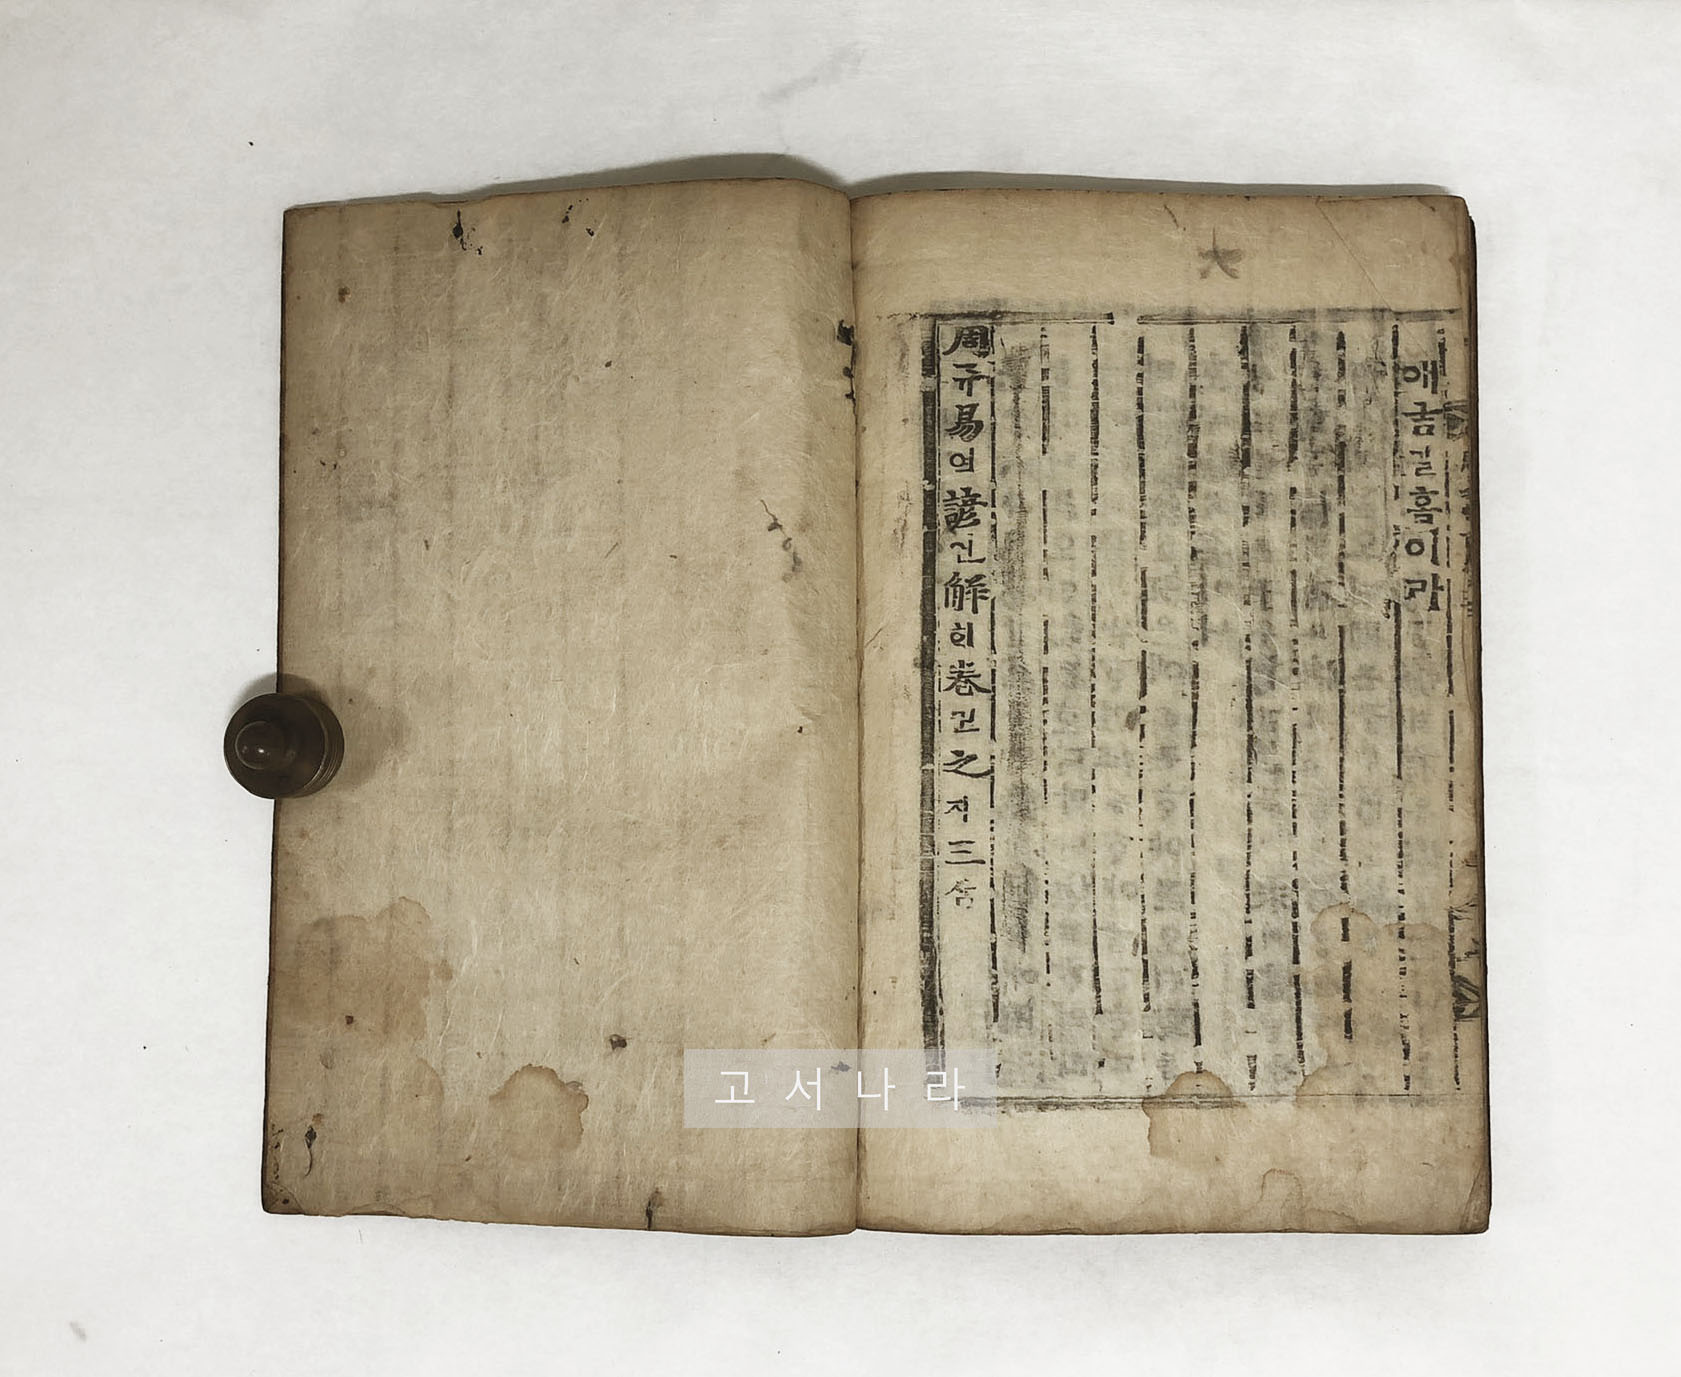 大
애금길홈이라
周쥬易역諺언解ᄒᆡ卷권之지三삼
고서나라